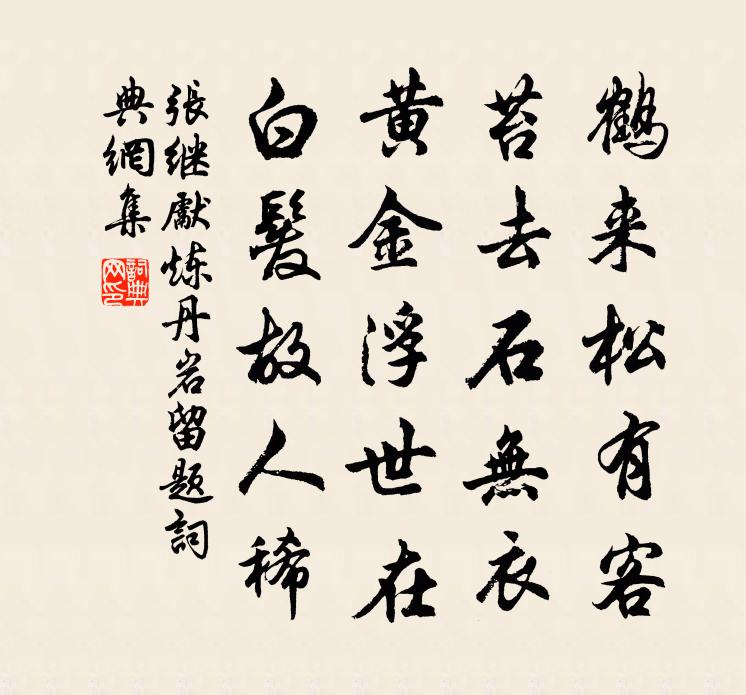 鶴来松有客
苔去石無衣
黄金浮世在
白髮故人稀
張继獻炼丹岩留题詞
典網集
詞典
网印